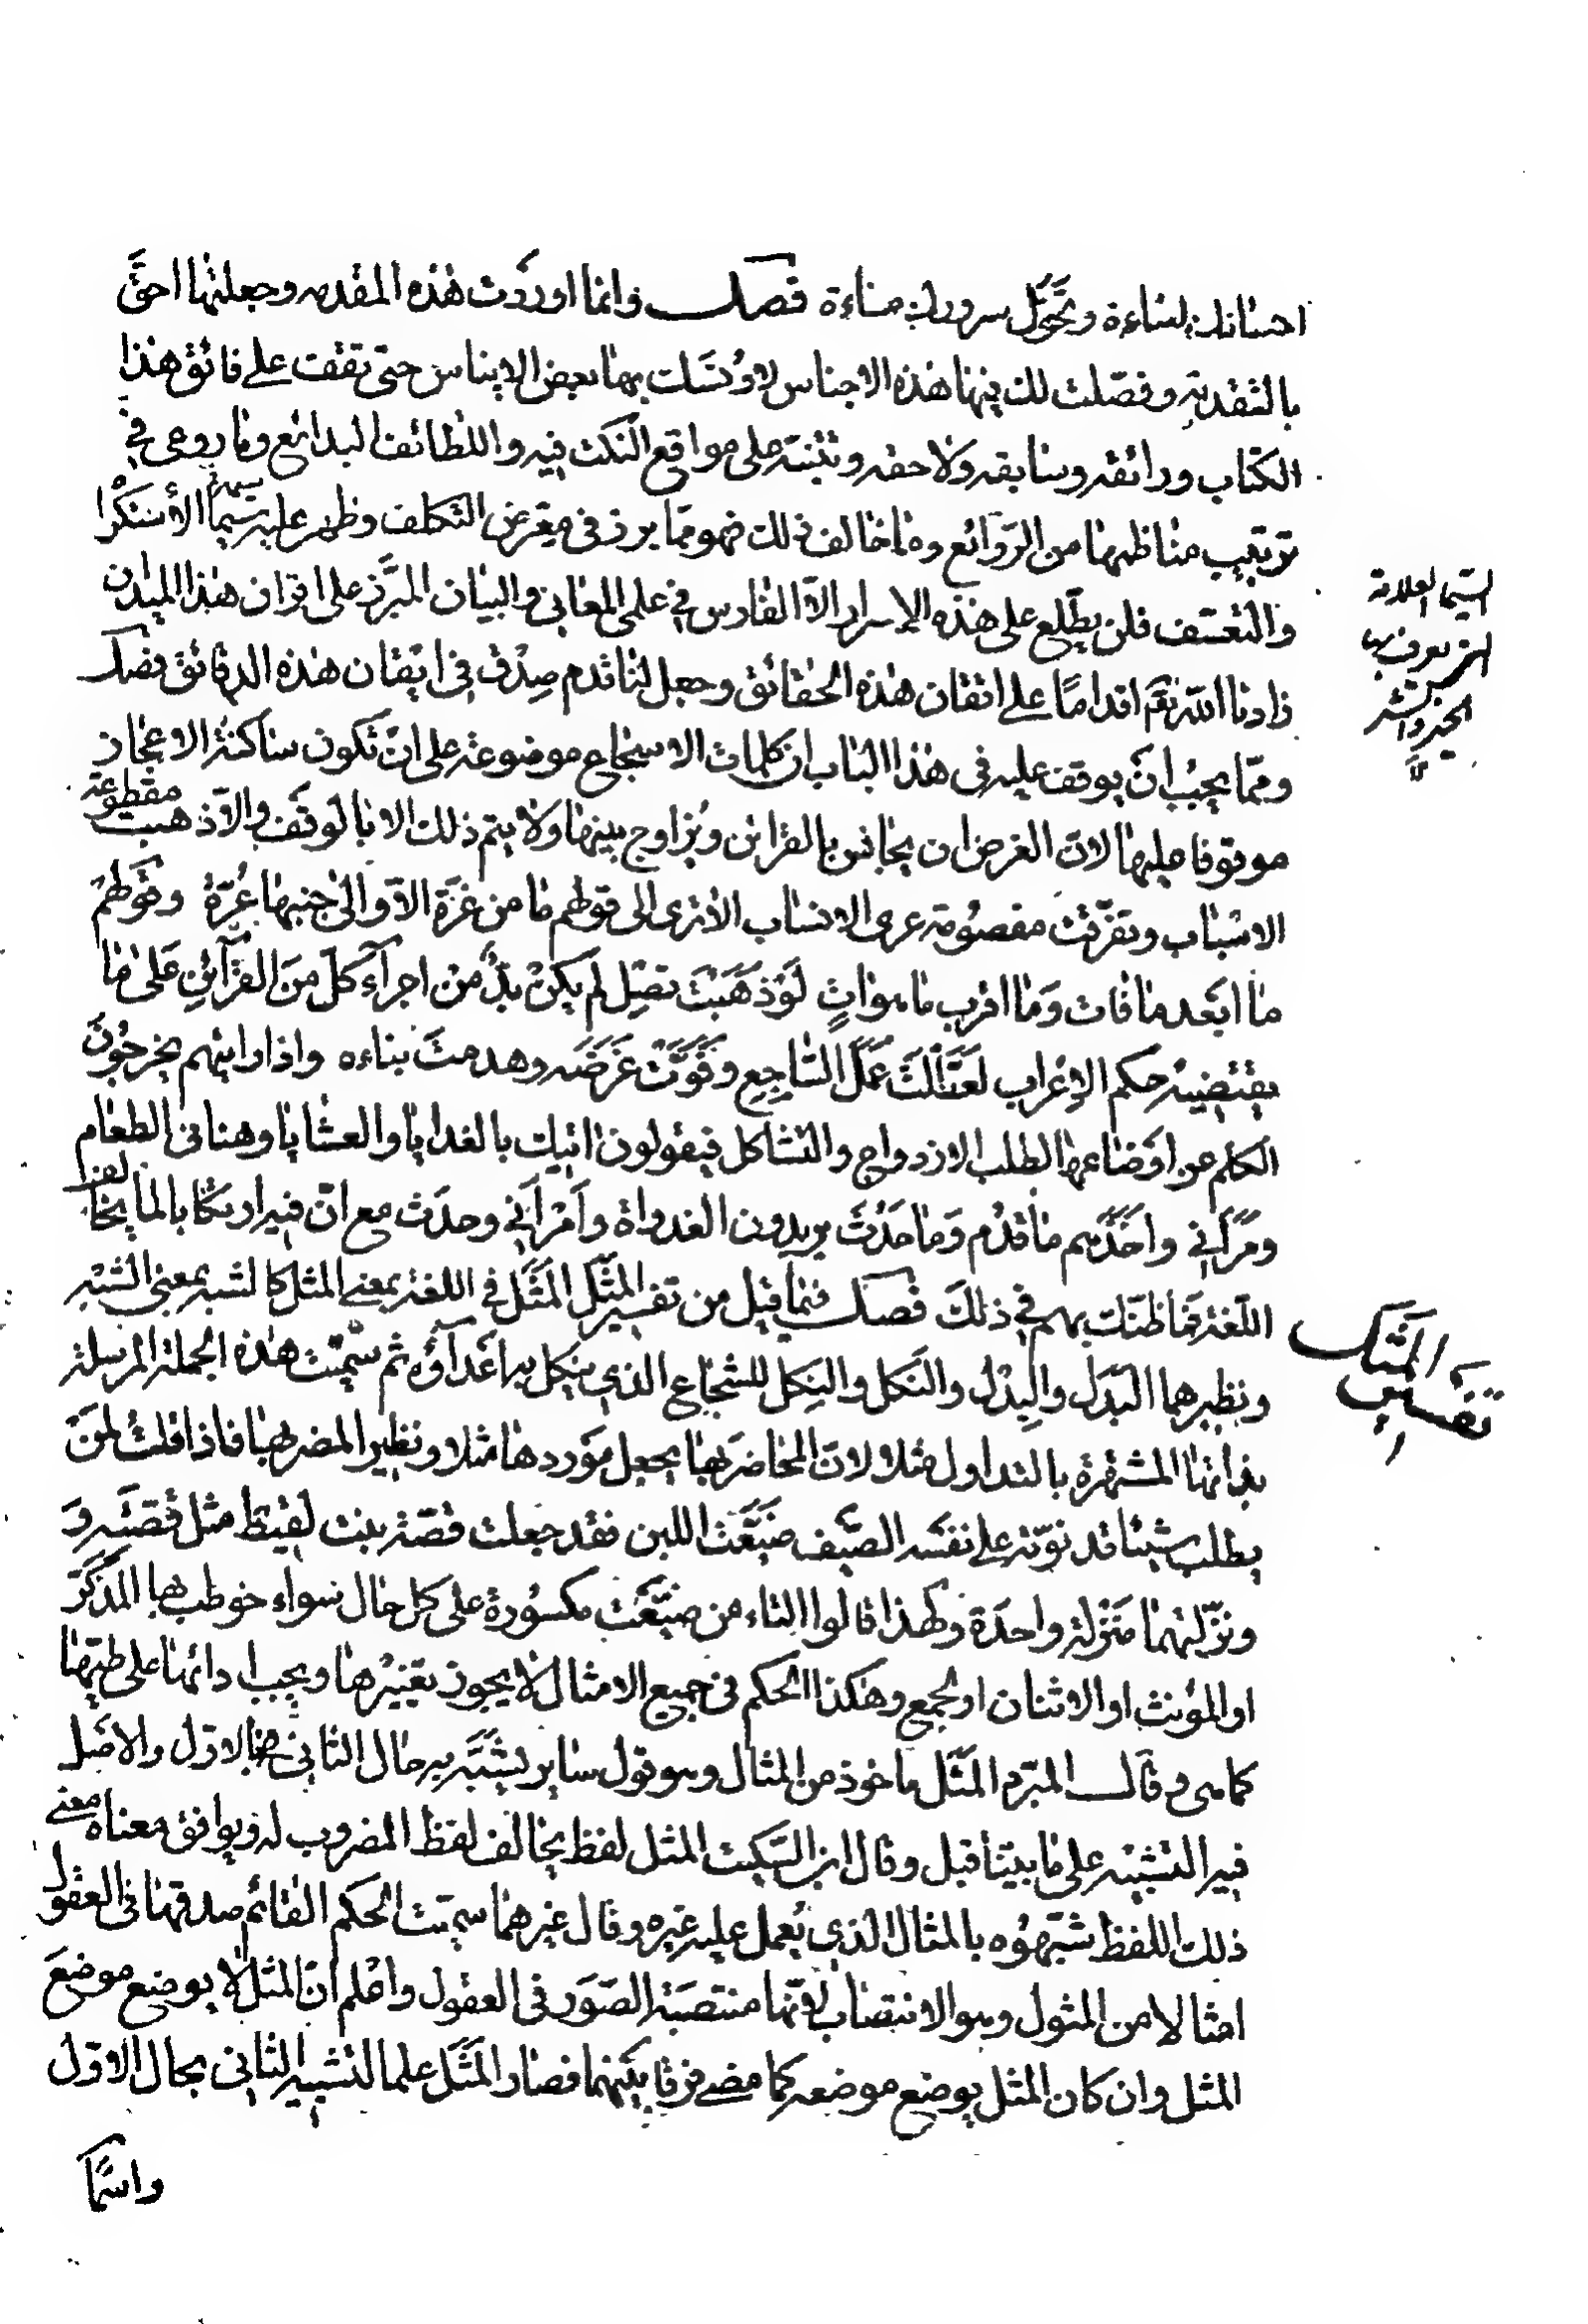 احسانك اساءة وتحوّل سرورك مساءة فصل وانما اوردت هذه المقدمه وجعلتها احقّ
بالتقدمة وفصّلت لك فيها هذه الاجناس لاونسك بها بعض الايناس حتى تقف على فائق هذا
الكتاب ورائقه وسابقه ولاحقه وتتنبه على مواقع النكت فيه واللطائف البدائع وما روعى فى
ترتيب مناظمها من الروائع وما خالف ذلك فهو ممّا برز فى معرض التكلف وظهر عليه سيما الاستكراه
والتعسّف فلن يطّلع على هذه الاسرار الاّ الفارس فى علمى المعانى والبيان المبرّز على اقران هذا الميدان
زادنا الله تعم اقداما على اتقان هذه الحقائق وجعل لنا قدم صدق فى ايقان هذه الدقائق فصل
وممّا يجب ان يوقف عليه فى هذا الباب ان كلمات الاسجاع موضوعة على انّ تكون ساكنة الاعجاز
موقوفا عليها لانّ الغرض ان يجانس بالقرائن ويزاوج بينها ولا يتم ذلك الا بالوقف والاّ ذهبت
مقطوعة
الاسباب وتفرّقت مفصومة عرى الانساب الا ترى الى قولهم ما من غرّة الاّ والى جنبها عُرّة وقولهم
ما ابعد ما فات وما اقرب ما هوات لو ذهبت تصل لم يكن بدّ من اجراء كلّ من القرائن على ما
يقتضيه حكم الاعراب لعطّلت عمل الساجع وفوّت غرضه وهدمت بناءه واذا رايتهم يخرجون
الكلم عن اوضاعها لطلب الازدواج والتشاكل فيقولون اتيك بالغدايا والعشايا وهنانى الطعام
ومرأنى واخذهم ما قدُم وما حدُث يريدون الغدواة وامرأنى وحدَث مع انّ فيه ارتكابا لما يخالف
اللّغة فما ظنّك بهم فى ذلك فصل فيما قيل من تفسير المثل المَثَل فى اللغة بمعنى المثل كالشبه بمعنى الشبه
ونظيرهما البَدَل والبِدْل والنَكَل والنِكل للشجاع الذى ينكل به اعداؤه ثم سمّيت هذه الجملة المرسلة
بذاتها المشتهرة بالتداول مثلا لانّ المحاضر بها يجعل موردها مثلا ونظيرا لمضربها فاذا قلت لمن
يطلب شيئا قد فوّته على نفسه الصّيف ضيّعت اللبن فقد جعلت قصّة بنت لقيط مثل قصّته و
ونزّلتهما منزلة واحدة ولهذا قالوا التاء من ضيّعت مكسورة على كل حال سواء خوطب بها المذكّر
او المؤنث او الاثنان او الجمع وهكذا الحكم فى جميع الامثال لا يجوز تغييرها ويجب اداؤها على هيئتها
كما هى وقال المبرّد المَثَل ماخوذ من المثال وهو قول ساير يشبّه به حال الثانى بالاوّل والاصل
فيه التشبيه على ما بيّنا قبل وقال ابن السّكيت المثل لفظ يخالف لفظ المضروب له ويوافق معناه معنى
ذلك اللفظ شبّهوه بالمثال الذى يُعمل عليه غيره وقال غيرهما سميت الحكم القائم صدقها فى العقول
امثالا من المثول وهو الانتصاب لانّها منتصبة الصّور فى العقول واعلم انّ المثل لا يوضع موضع
المثل وان كان المثل يوضع موضعه كما مضى فرقا بينهما فصار المَثَل علما لتشبيه الثانى بحال الاوّل
واسمًا
السّيما العلامة
التى يعرف بها
الخير والشر
تفسير المثل